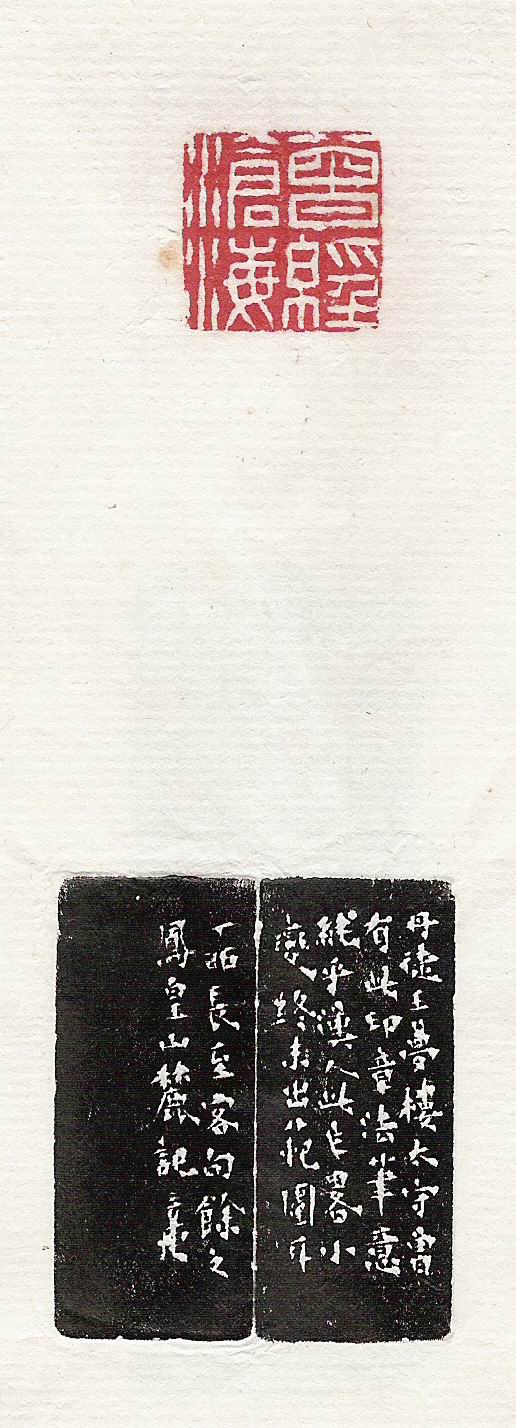 曾經
滄海
丹徒王夢樓太守曾
有此印章法筆意
純乎漢人此作畧小
變終未出範圍耳
丁酉長至客句餘之
鳳皇山麓記